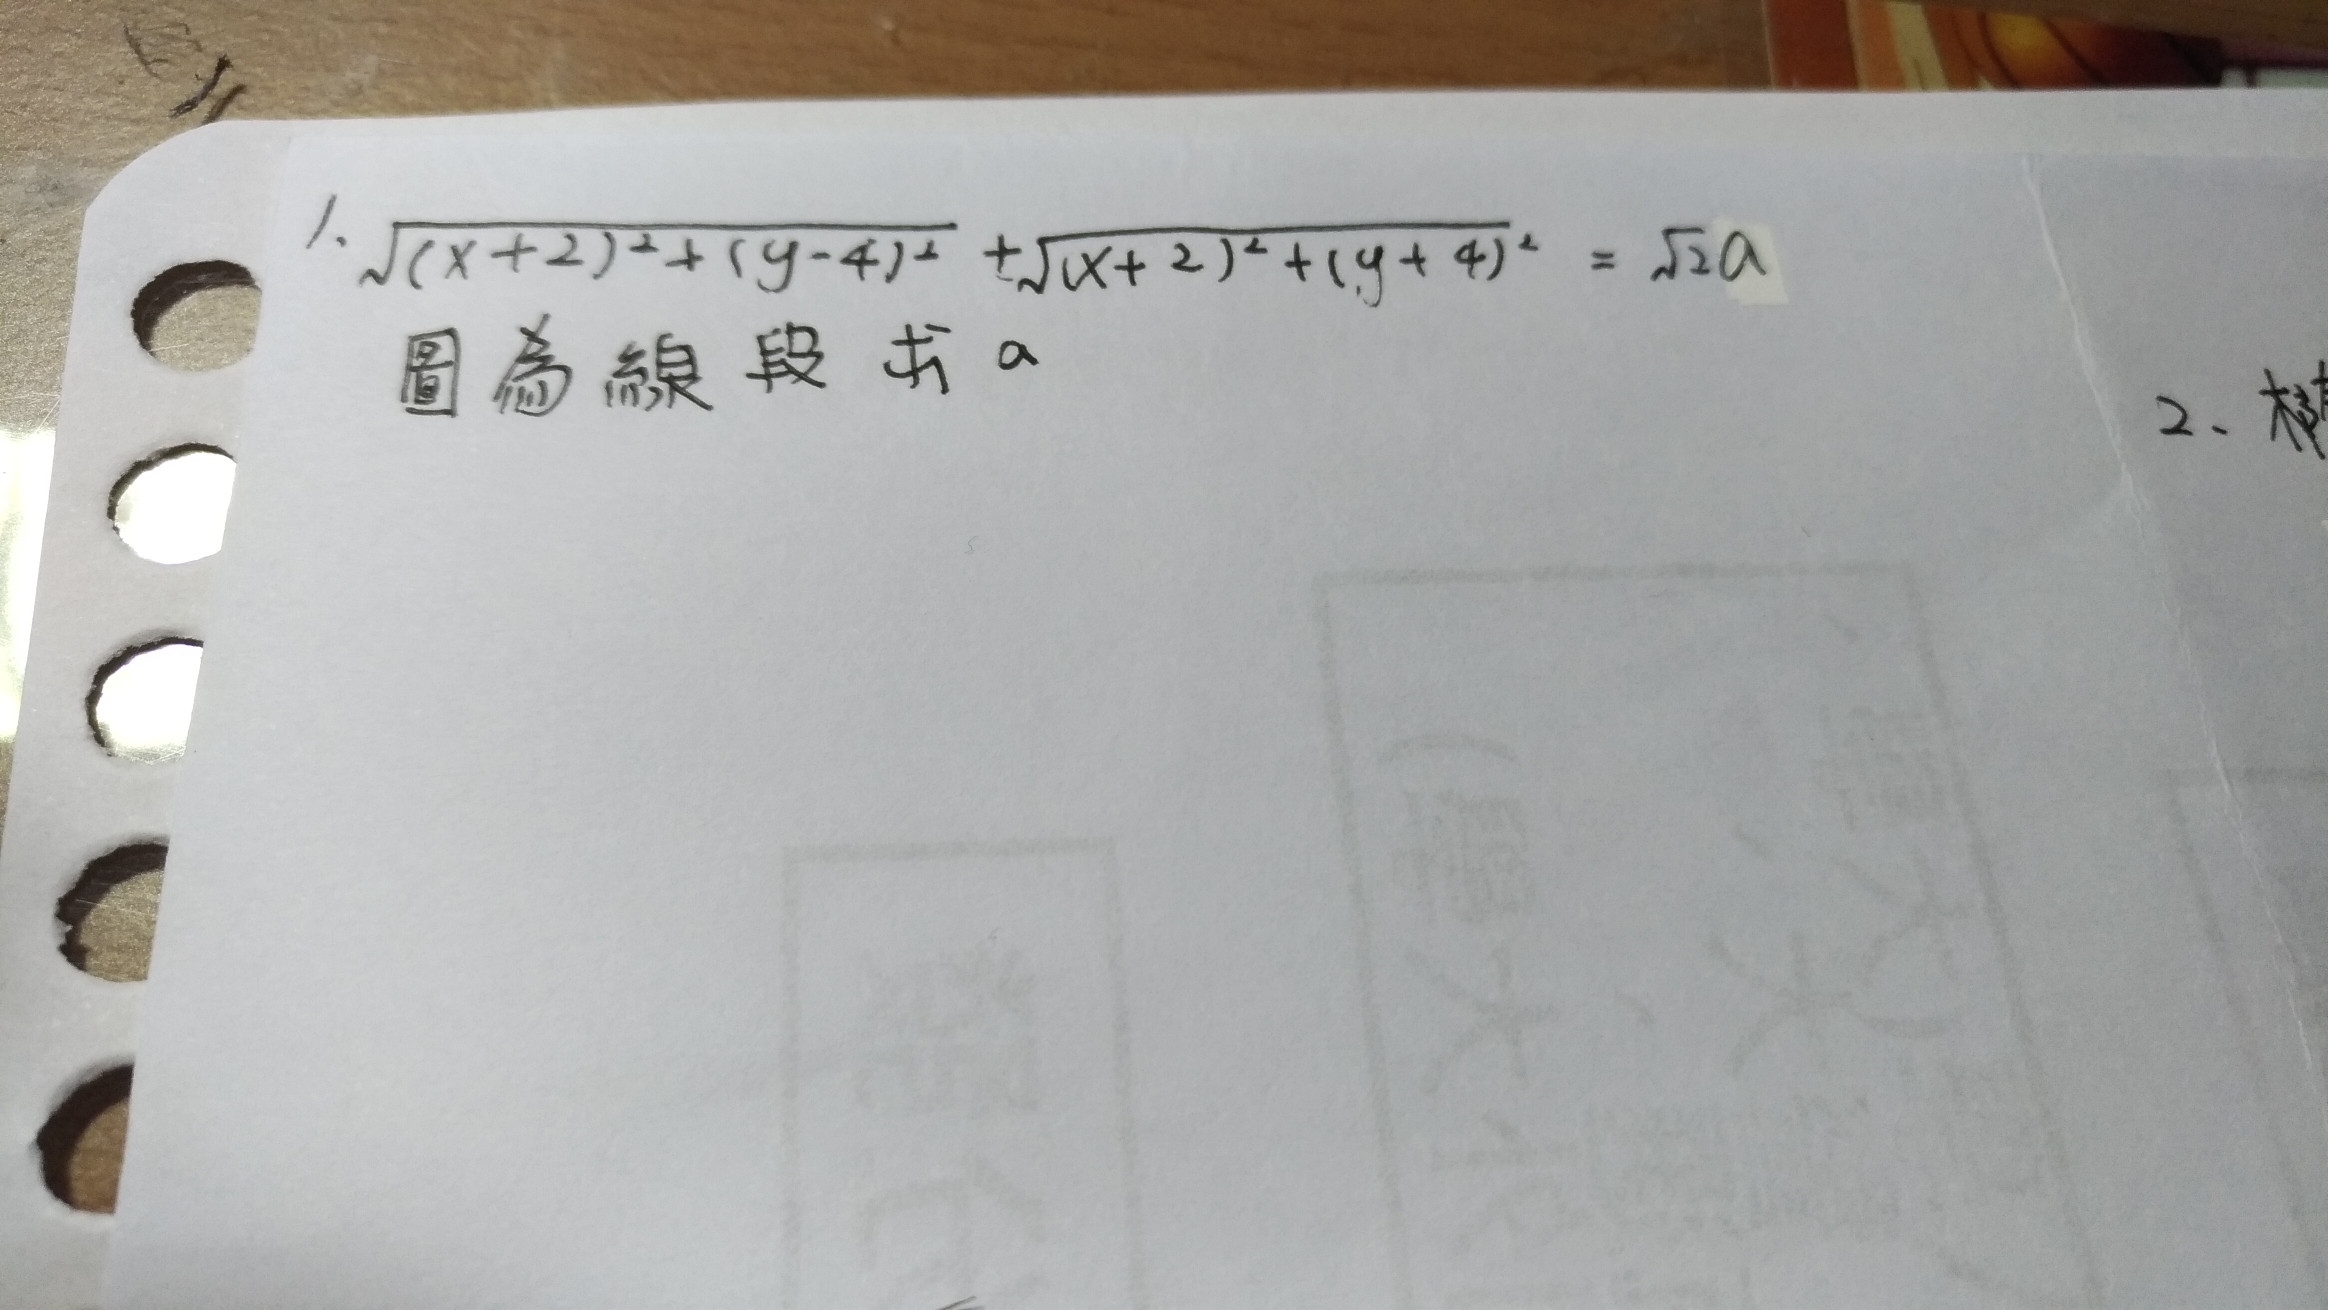 1. √(x+2)²+(y-4)² ±√(x+2)²+(y+4)² = √2a
圖為線段求a
2、